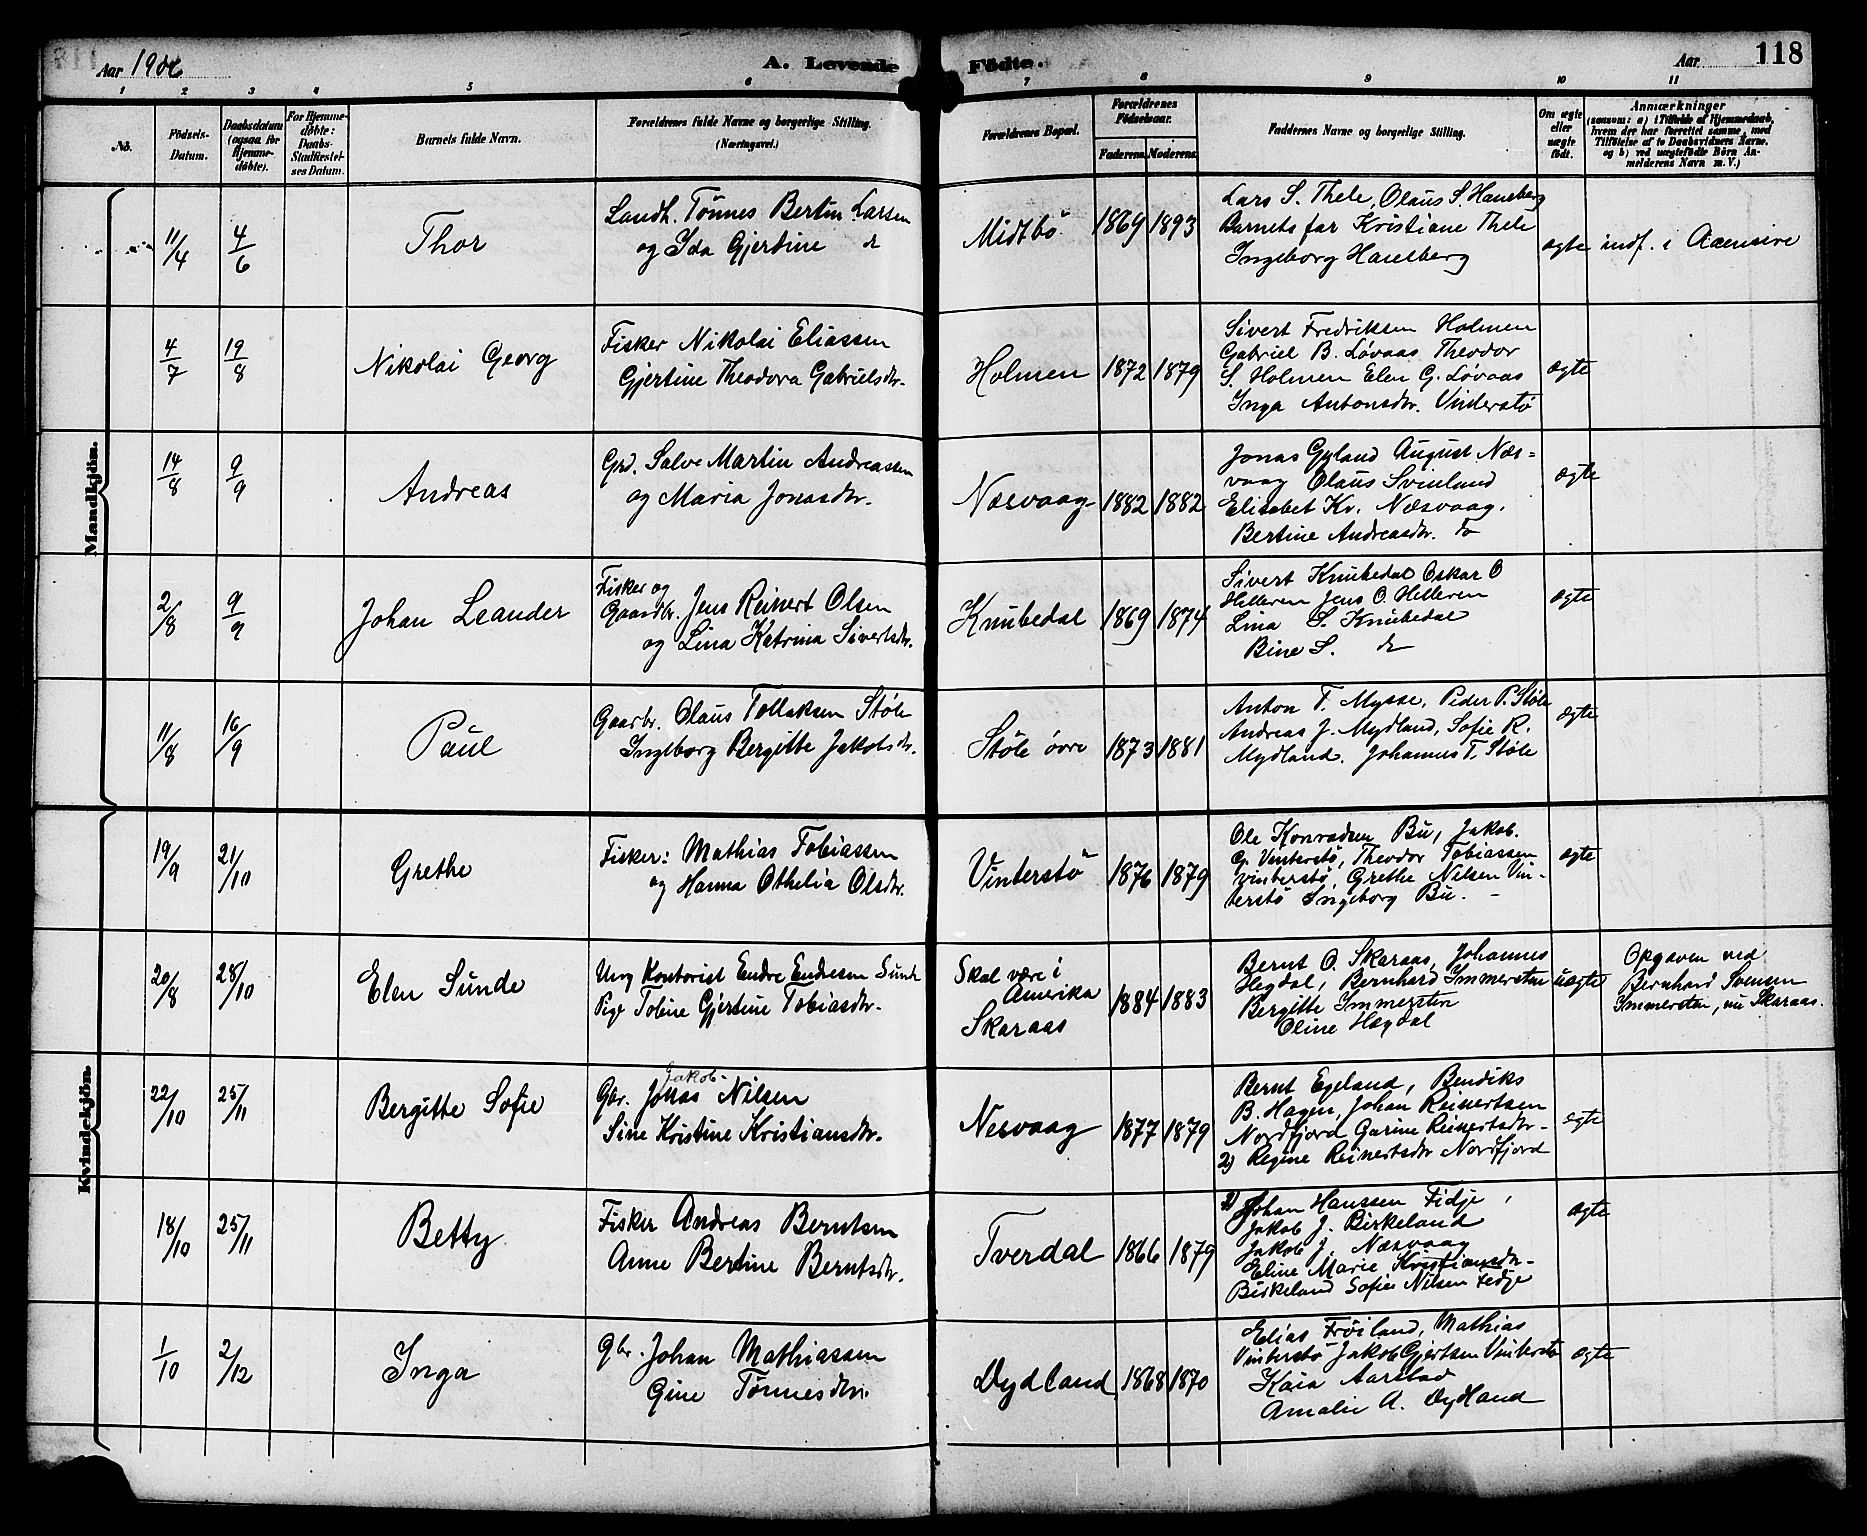 Aar 1906
A. Levende Fødte.
Aar
118
1 2 3 4 5 6 7 8 9 10 11
No.
Fødsels-Datum.
Daabsdatum (ogsaa for Hjemmedøbte).
For Hjemmedøbte: Daabs-Stadfæstelses Datum.
Barnets fulde Navn.
Forældrenes fulde Navne og borgerlige Stilling. (Næringsvei.)
Forældrenes Bopæl.
Forældrenes Fødselsaar.
Faderens. Moderens.
Faddernes Navne og borgerlige Stilling.
Om ægte eller uægte født.
Anmærkninger
(saasom: a) i Tilfælde af Hjemmedaab,
hvem der har forrettet samme, med
Tilføielse af to Daabsvidners Navne,
og b) ved uægtefødte Børn An-
melderens Navn m. V.)
Mandkjön.
11/4 4/6 Thor
Landh. Tönnes Bertin Larsen
og Ida Gjertine
Midtbö 1869 1893
Lars S. Thele, Olaus S. Haneberg
Barnets far Kristiane Thele
Ingeborg Haneberg
ægte indf. i
4/7 19/8 Nikolai Georg
Fisker Nikolai Eliassen
Gjertine Theodora Gabrielsdtr.
Holmen 1872 1879
Sivert Fredriksen Holmen
Gabriel B. Løvaas Theodor
S. Holmen Elen G. Løvaas
Inga Antonsdtr. Vinterstø
ægte
14/8 9/9 Andreas
Grd. Salve Martin Andreassen
og Maria Jonasdtr.
Næsvaag 1882 1882
Jonas Gyland August Næs-
vaag Olaus Svinland
Elisabet Kr. Næsvaag.
Bertine Andreasdtr. do
ægte
2/8 9/9 Johan Leander
Fisker og
Gaardbr. Jens Reinert Olsen
og Lina Katrina Sivertsdtr.
Knubedal 1869 1874
Sivert Knubedal Oskar O
Helleren Jens O. Helleren
Lina S. Knubedal
Bine S. do
ægte
11/8 16/9 Paul
Gaarbr. Olaus Tollaksen Støle
Ingeborg Bergitte Jakobsdtr.
Støle övre 1873 1881
Anton T. Mysse, Peder P. Støle
Andreas J. Mydland, Sofie R.
Mydland. Johannes T. Støle
ægte
Kvindekjön.
19/9 21/10 Grethe
Fisker: Mathias Tobiassen
og Hanna Othelia Olsdtr.
Vinterstö 1876 1879
Ole Konradsen Bu, Jakob.
G. Vinterstø, Theodor Tobiassen
Vinterstø, Grethe Nilsen Vin-
terstø Ingeborg Bu.
ægte
20/8 28/10 Elen Sunde
Ung Kontorist Endre Endresen Sunde
Pige Tobine Gjertine Tobiasdtr.
Skal være i
Amerika
Skaraas
1884 1883
Bernt O. Skaraas, Johannes
Hegdal, Bernhard Immersten
Bergitte Immersten
Oline Hægdal
uægte
Opgaven ved
Bernhard Svensen
Immersten, nu Skaraas.
22/10 25/11 Bergitte Sofie
Jakob
Gbr. Jonas Nilsen
Sine Kristine Kristiansdtr.
Nesvaag 1877 1879
Bernt Egeland, Bendiks
B. Hagen, Johan Reinertsen
Nordfjord Garine Reinertsdtr.
2) Regine Reinertsdtr Nordfjord
egte
18/10 25/11 Betty
Fisker Andreas Berntsen
Anne Bertine Berntsdtr.
Tverdal 1866 1879
Johan Hanssen Fidje,
Jakob J. Birkeland
Jakob J. Næsvaag
Eline Marie Kristiansdtr.
Birkeland Sofie Nilsen Fedje
ægte
1/10 2/12 Inga
Gbr. Johan Mathiassen
Gine Tönnesdtr.
Dydland 1868 1870
Elias Frøiland, Mathias
Vinterstø Jakob Gjertsen Vinterstø
Kaia Aarstad
Amalie A. Dydland
ægte